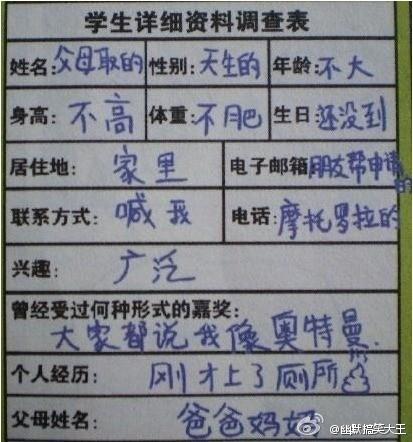 学生详细资料调查表
姓名:父母取的 性别:天生的 年龄:不大
身高:不高 体重:不肥 生日:还没到
居住地:家里 电子邮箱朋友帮申请的
联系方式:喊我 电话:摩托罗拉的
兴趣:广泛
曾经受过何种形式的嘉奖:
大家都说我像奥特曼.
个人经历:刚才上了厕所
父母姓名:爸爸妈妈
@幽默搞笑大王